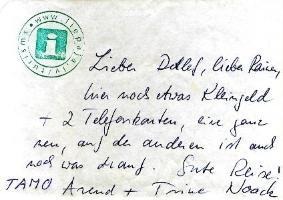 www.liepaja.lv/turisms
i
Lieber Detlef, lieber Rainer,
hier noch etwas Kleingeld
+ 2 Telefonkarten, eine ganz
neu, auf der anderen ist auch
noch was drauf. Gute Reise!
TAMO Arend + Trine Noack